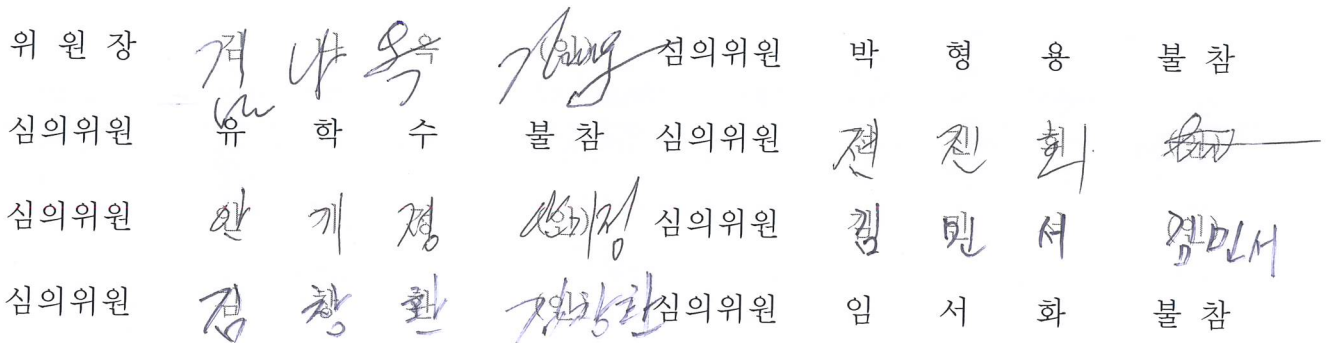 위 원 장 김 나 옥 심의위원 박 형 용 불 참
심의위원 유 학 수 불 참 심의위원 전 진 희
심의위원 안 계 정 안계정 심의위원 김 민 서 김민서
심의위원 김 창 환 김창환 심의위원 임 서 화 불 참